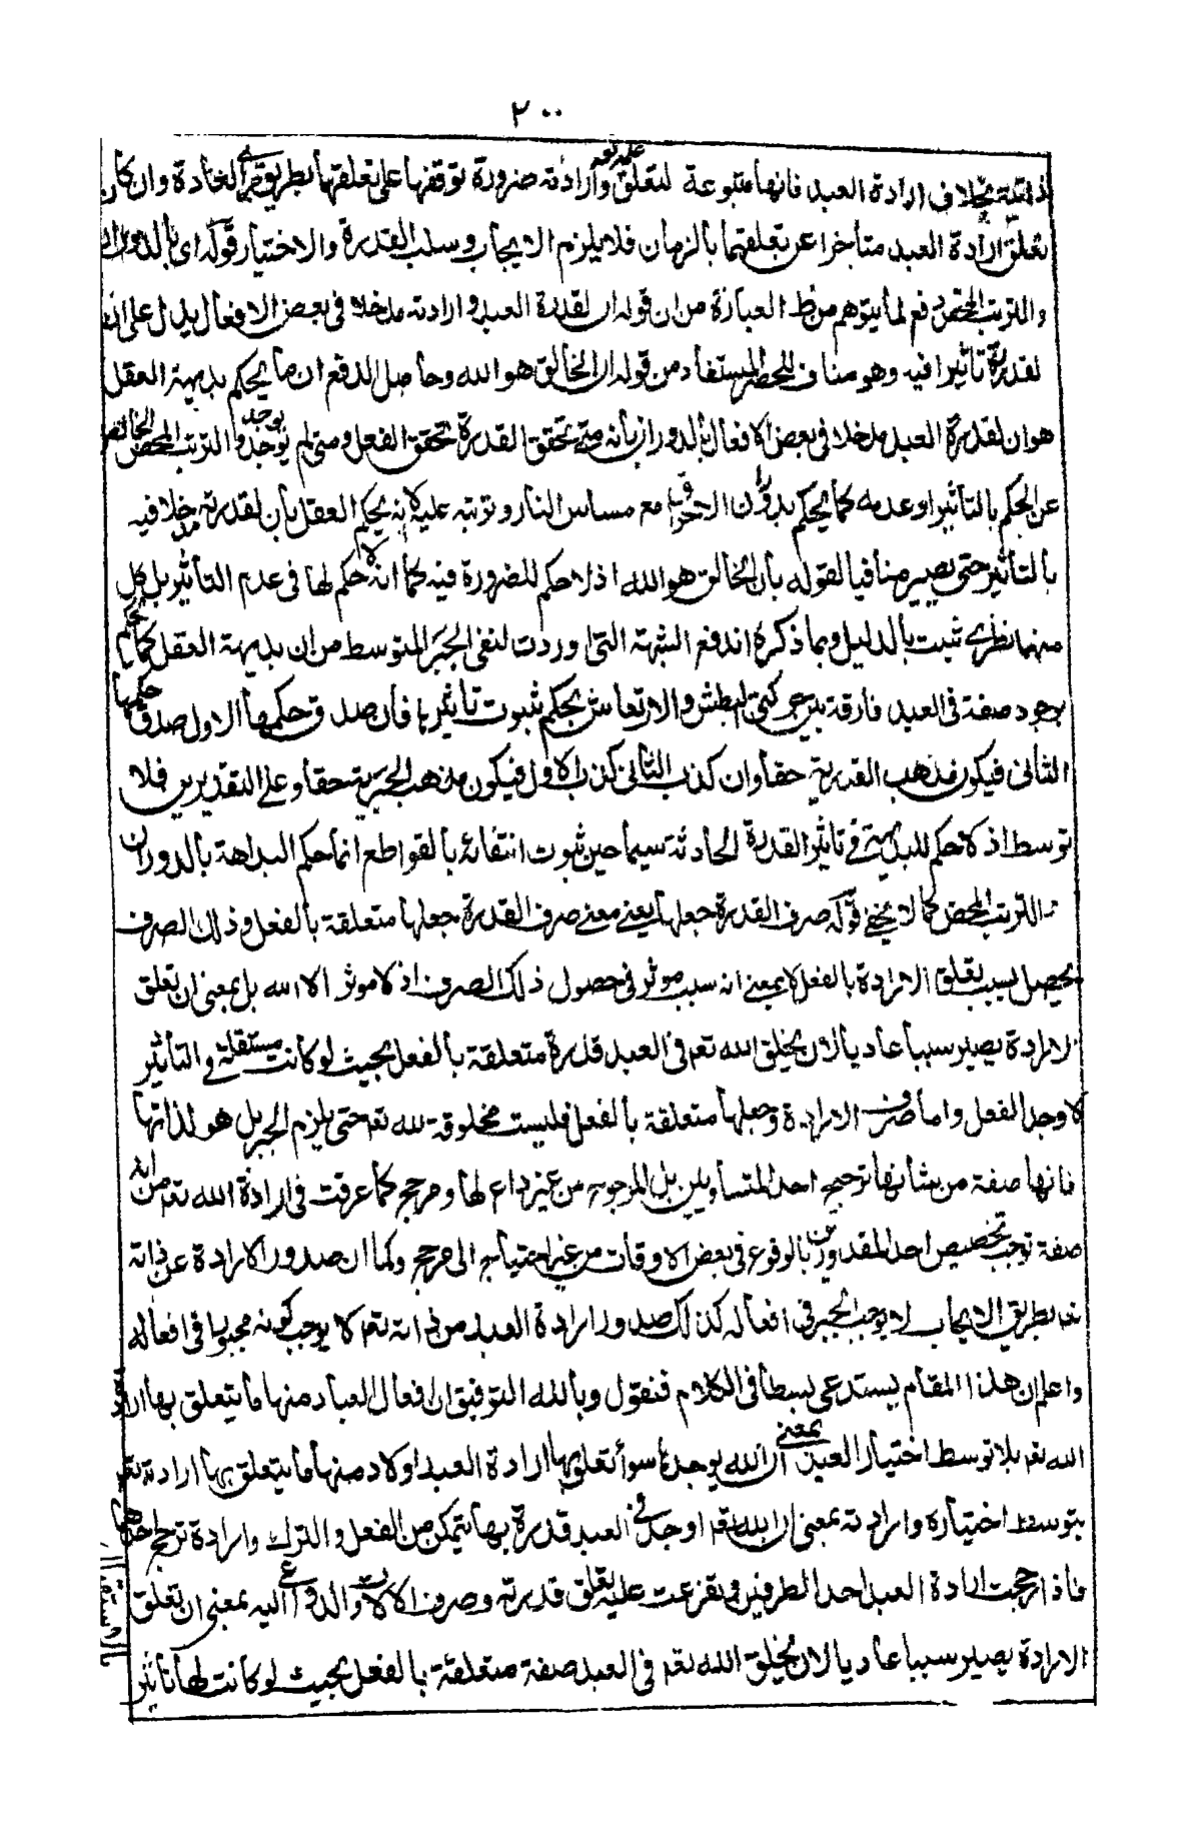 ٢٠٠
ذاتية بخلاف ارادة العبد فانها متبوعة لتعلق علمه تعم وارادته ضرورة توقفها على تعلقها بطريق جرى العادة وان كان
تعلق ارادة العبد متأخرا عن تعلقهما بالزمان فلا يلزم الايجاب وسلب القدرة والاختيار قوله اى بالدوران
والترتب المحض دفع لما يتوهم من ظ العبارة من ان قوله ان لقدرة العبد وارادته مدخلا فى بعض الافعال يدل على ان
لقدرته تأثيرا فيه وهو مناف للحصر المستفاد من قوله ان الخالق هو الله وحاصل الدفع ان ما يحكم بديهة العقل
هو ان لقدرة العبد مدخلا فى بعض الافعال بالدوران بأنه متى تحقق القدرة تحقق الفعل ومتى لم يوجد لم يوجد والترتب المحض الخالص
عن الحكم بالتأثير او عدمه كما يحكم بدوران الاحتراق مع مساس النار وترتبه عليه لا انه يحكم العقل بأن لقدرته مدخلا فيه
بالتأثير حتى يصير منافيا لقوله بأن الخالق هو الله اذ لا حكم للضرورة فيه كما انه لا حكم لها فى عدم التأثير بل كل
منهما نظرى ثبت بالدليل وبما ذكره اندفع الشبهة التى وردت لنفى الجبر المتوسط من ان بديهة العقل كما يحكم
بوجود صفة فى العبد فارقة بين حركتى البطش والارتعاش يحكم بثبوت تأثيرها فان صدق حكمها الاول صدق حكمها
الثانى فيكون مذهب القدرية حقا وان كذب الثانى كذب الاول فيكون مذهب الجبرية حقا وعلى التقديرين فلا
توسط اذ لا حكم للبديهة فى تأثير القدرة الحادثة سيما حين ثبوت انتفائه بالقواطع انما حكم البداهة بالدوران
والترتب المحض كما لا يخفى قوله صرف القدرة جعلها يعنى معنى صرف القدرة جعلها متعلقة بالفعل وذلك الصرف
يحصل بسبب تعلق الارادة بالفعل لا بمعنى انه سبب موثر فى حصول ذلك الصرف اذ لا موثر الا الله بل بمعنى ان تعلق
الارادة يصير سببا عاديا لان يخلق الله تعم فى العبد قدرة متعلقة بالفعل بحيث لو كانت مستقلة فى التأثير
لاوجد الفعل واما صرف الارادة وجعلها متعلقة بالفعل فليست مخلوقة لله تعم حتى يلزم الجبر بل هو لذاتها
فانها صفة من شأنها ترجيح احد المتساويين بل المرجوح من غير داع لها ومرجح كما عرفت فى ارادة الله تعم من انه
صفة توجب تخصيص احد المقدورين بالوقوع فى بعض الاوقات من غير احتياج الى مرجح وكما ان صدور الارادة عن ذاته
تعم بطريق الايجاب لا يوجب الجبر فى افعاله كذلك صدور ارادة العبد من ذاته تعم لا يوجب كونه مجبورا فى افعاله
واعلم ان هذا المقام يستدعى بسطا فى الكلام فنقول وبالله التوفيق ان افعال العباد منها ما يتعلق بها ارادة
الله تعم بلا توسط اختيار العبد بمعنى ان الله يوجدها سواء تعلق بها ارادة العبد او لا ومنها ما يتعلق بها ارادته تعم
بتوسط اختياره وارادته بمعنى ان الله تعم اوجد فى العبد قدرة بها يتمكن من الفعل والترك وارادة ترجح احدهما
فاذا رجحت ارادة العبد احد الطرفين وتفرعت عليه تعلق قدرته وصرف الالات والدواعى اليه بمعنى ان تعلق
الارادة يصير سببا عاديا لان يخلق الله تعم فى العبد صفة متعلقة بالفعل بحيث لو كانت لها تأثير
بالاستقلال